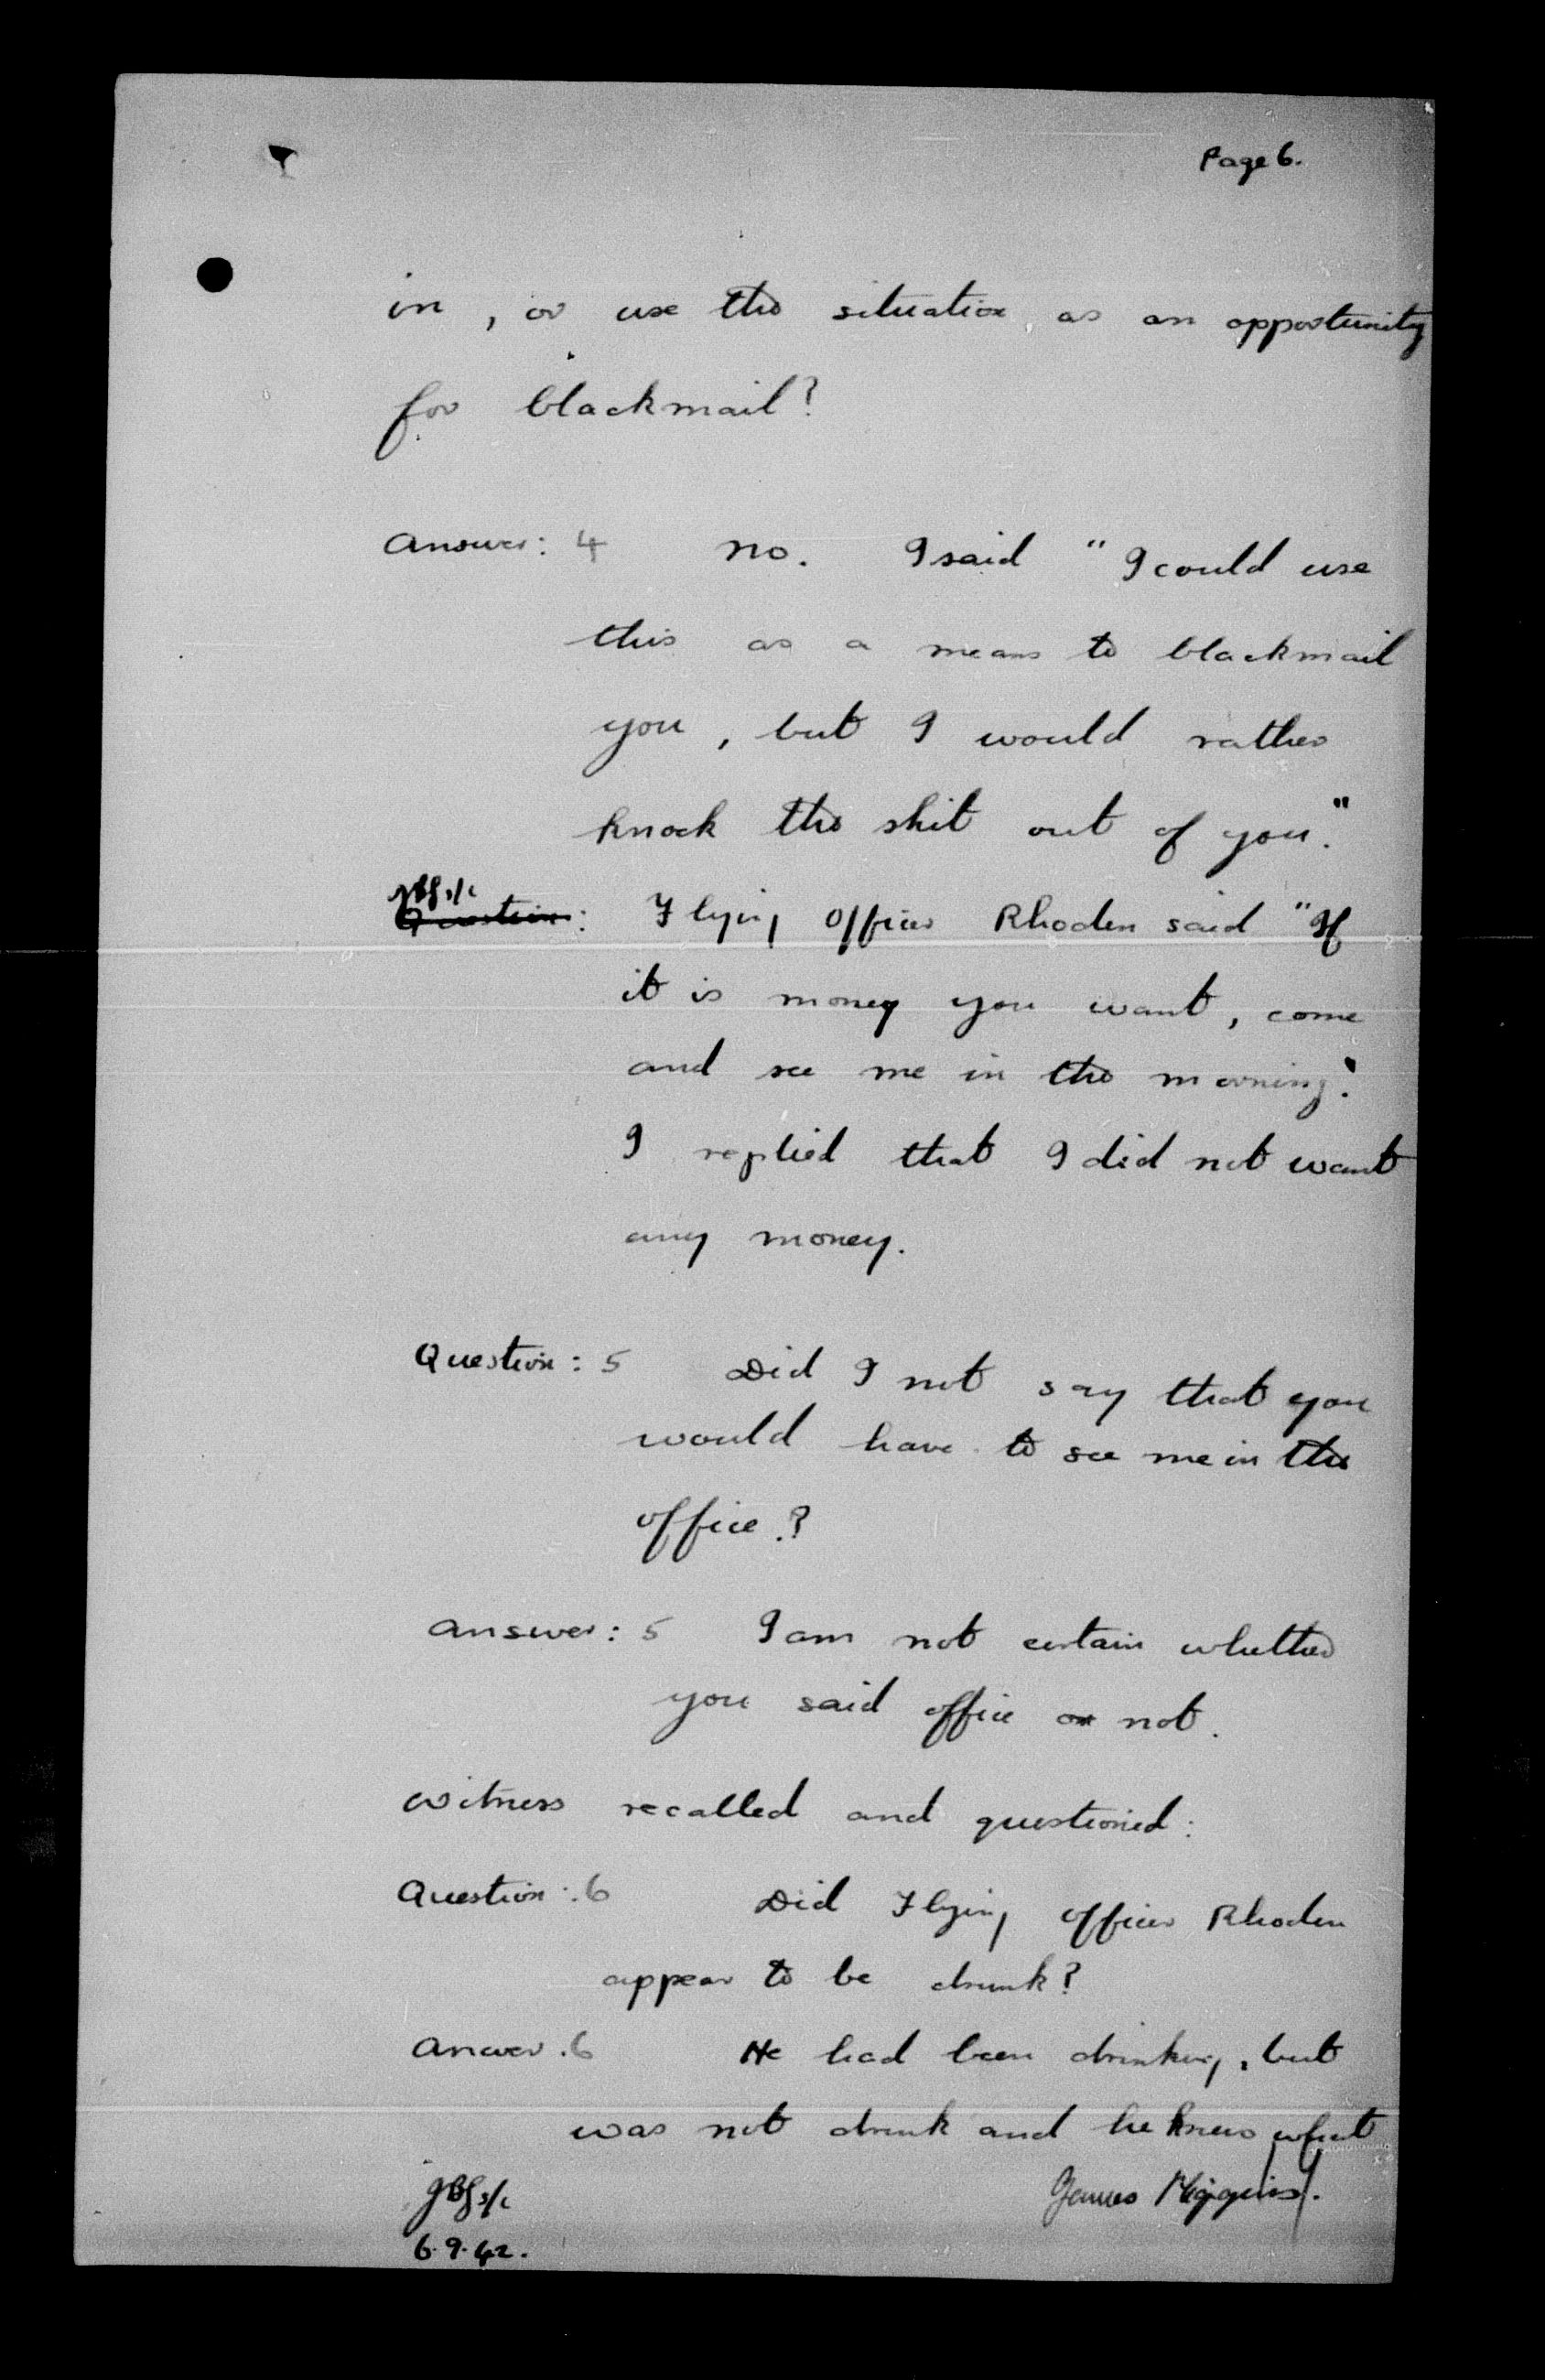 Page 6.
in, or use the situation as an opportunity
for blackmail?
Answer: 4 No. I said "I could use
this as a means to blackmail
you, but I would rather
knock the shit out of you."
Question: Flying Officer Rhoden said "If
it is money you want, come
and see me in the morning".
I replied that I did not want
any money.
Question: 5 Did I not say that you
would have to see me in the
office?
Answer: 5 I am not certain whether
you said office or not.
Witness recalled and questioned:
Question: 6 Did Flying Officer Rhoden
appear to be drunk?
Answer. 6 He had been drinking, but
was not drunk and he knew what
James Higgins.
6.9.42.